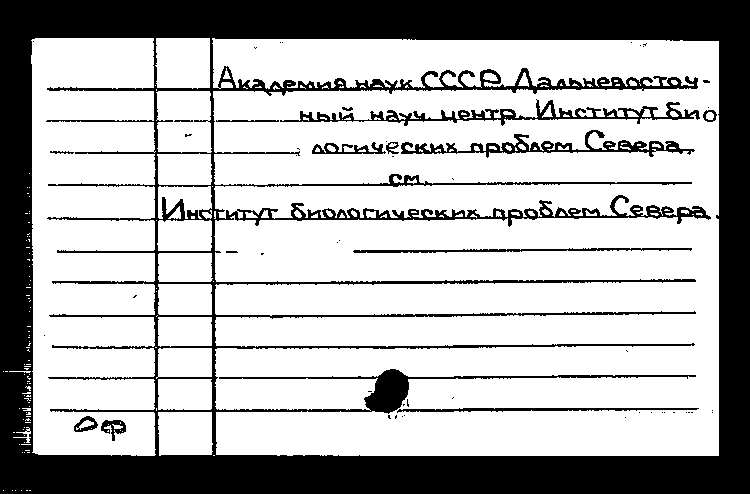 Академия наук СССР. Дальневосточ-
ный науч. центр. Институт био
логических проблем Севера.
см.
Институт биологических проблем Севера.
Оф